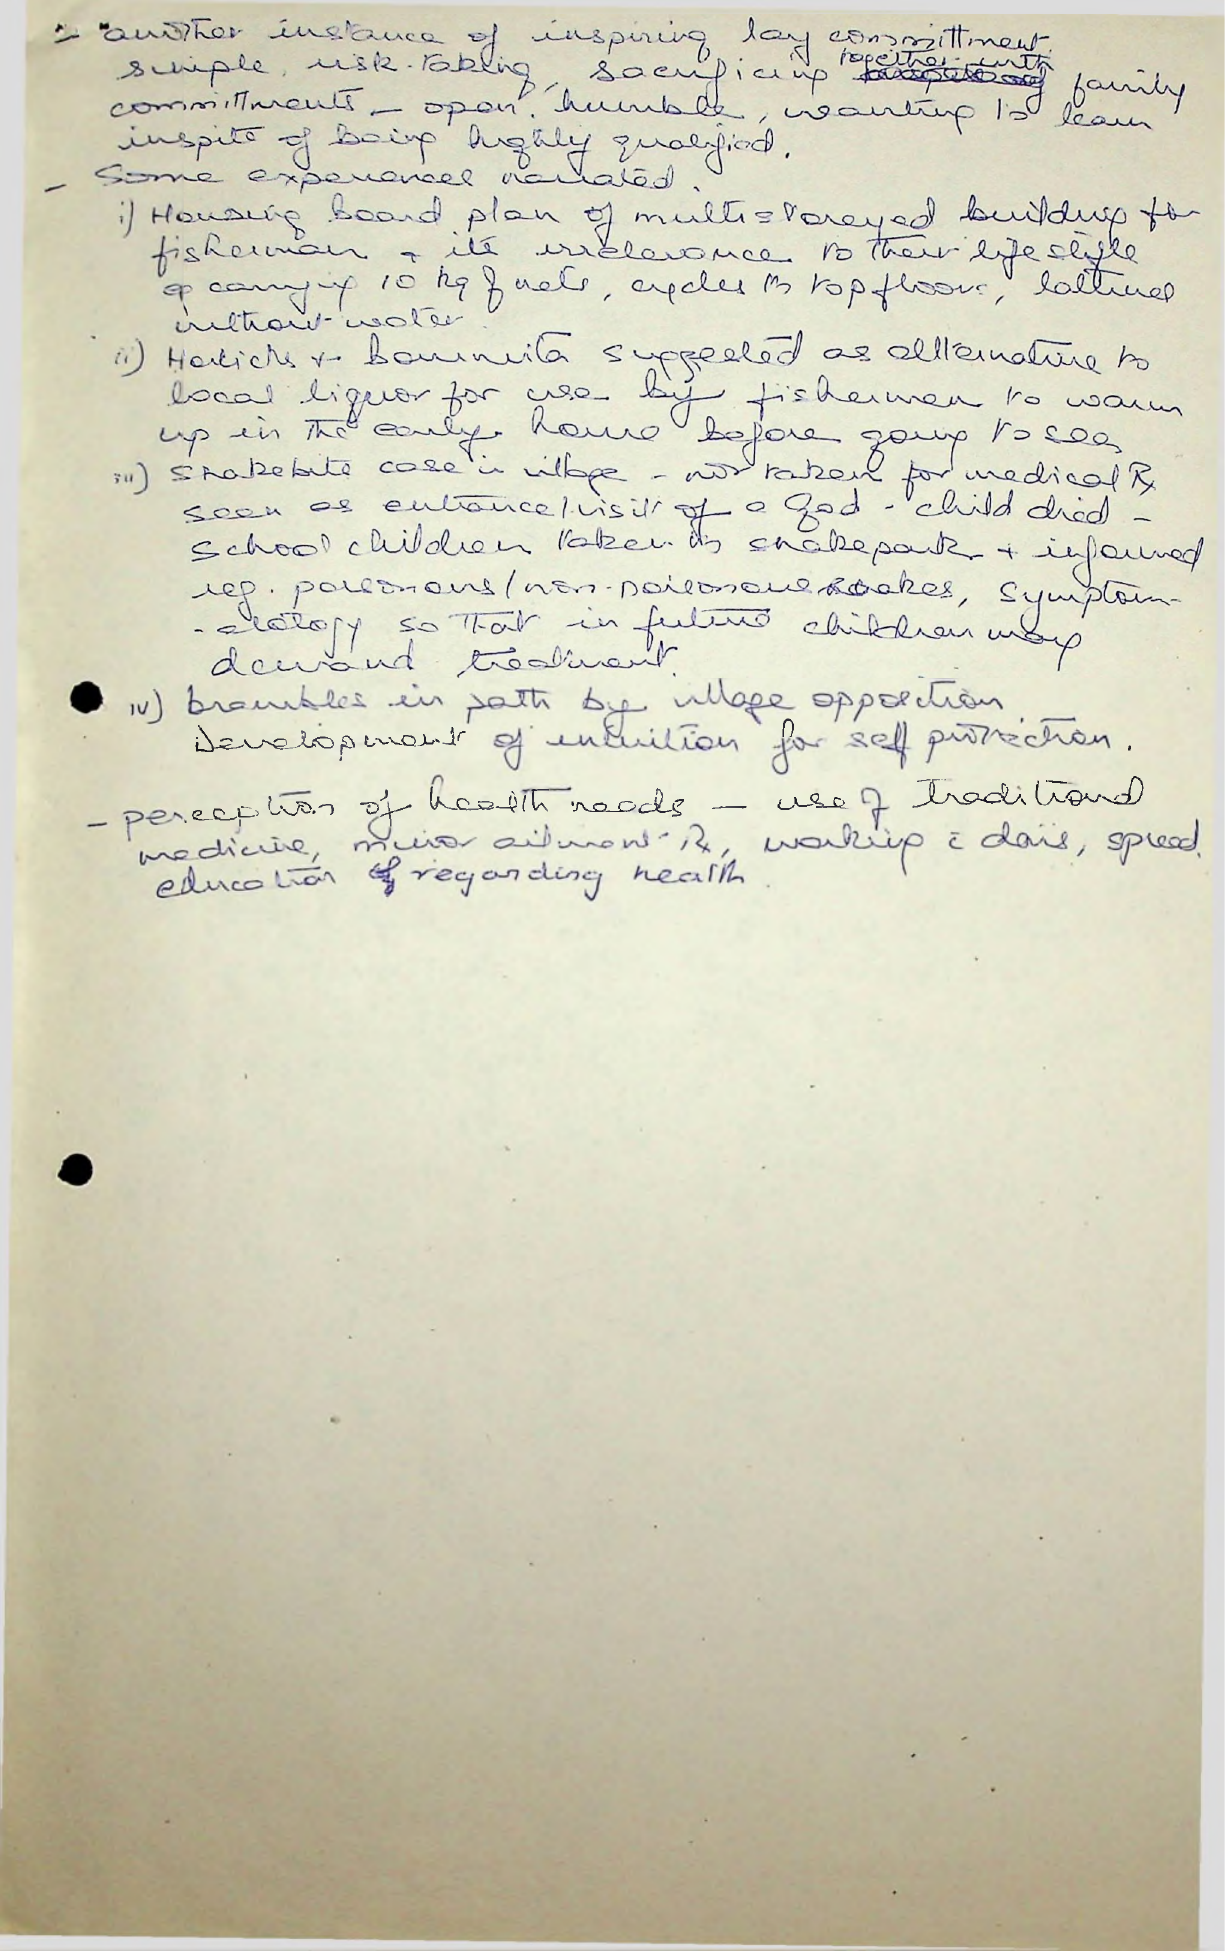 - another instance of inspiring lay committment.
simple, risk-taking, sacrificing together with family
committments - open, humble, wanting to learn
inspite of being highly qualified.
- Some experiences narrated.
i) Housing board plan of multistoreyed building for
fisherman & its irrelevance to their lifestyle
of carrying 10 kg of nets, cycles to top floors, latrines
without water.
ii) Horlicks & bournvita suggested as alternative to
local liquor for use by fishermen to warm
up in the early hours before going to sea
iii) Snakebite case in village - not taken for medical Rx
seen as entrance/visit of a God - child died -
School children taken to snakepark & informed
reg. poisonous/non-poisonous snakes, symptom-
-atology so that in future children may
demand treatment.
iv) brambles in path by village opposition.
Development of intuition for self protection.
- perception of health needs - use of traditional
medicine, minor ailment Rx, working c̄ dais, spread
education regarding health.